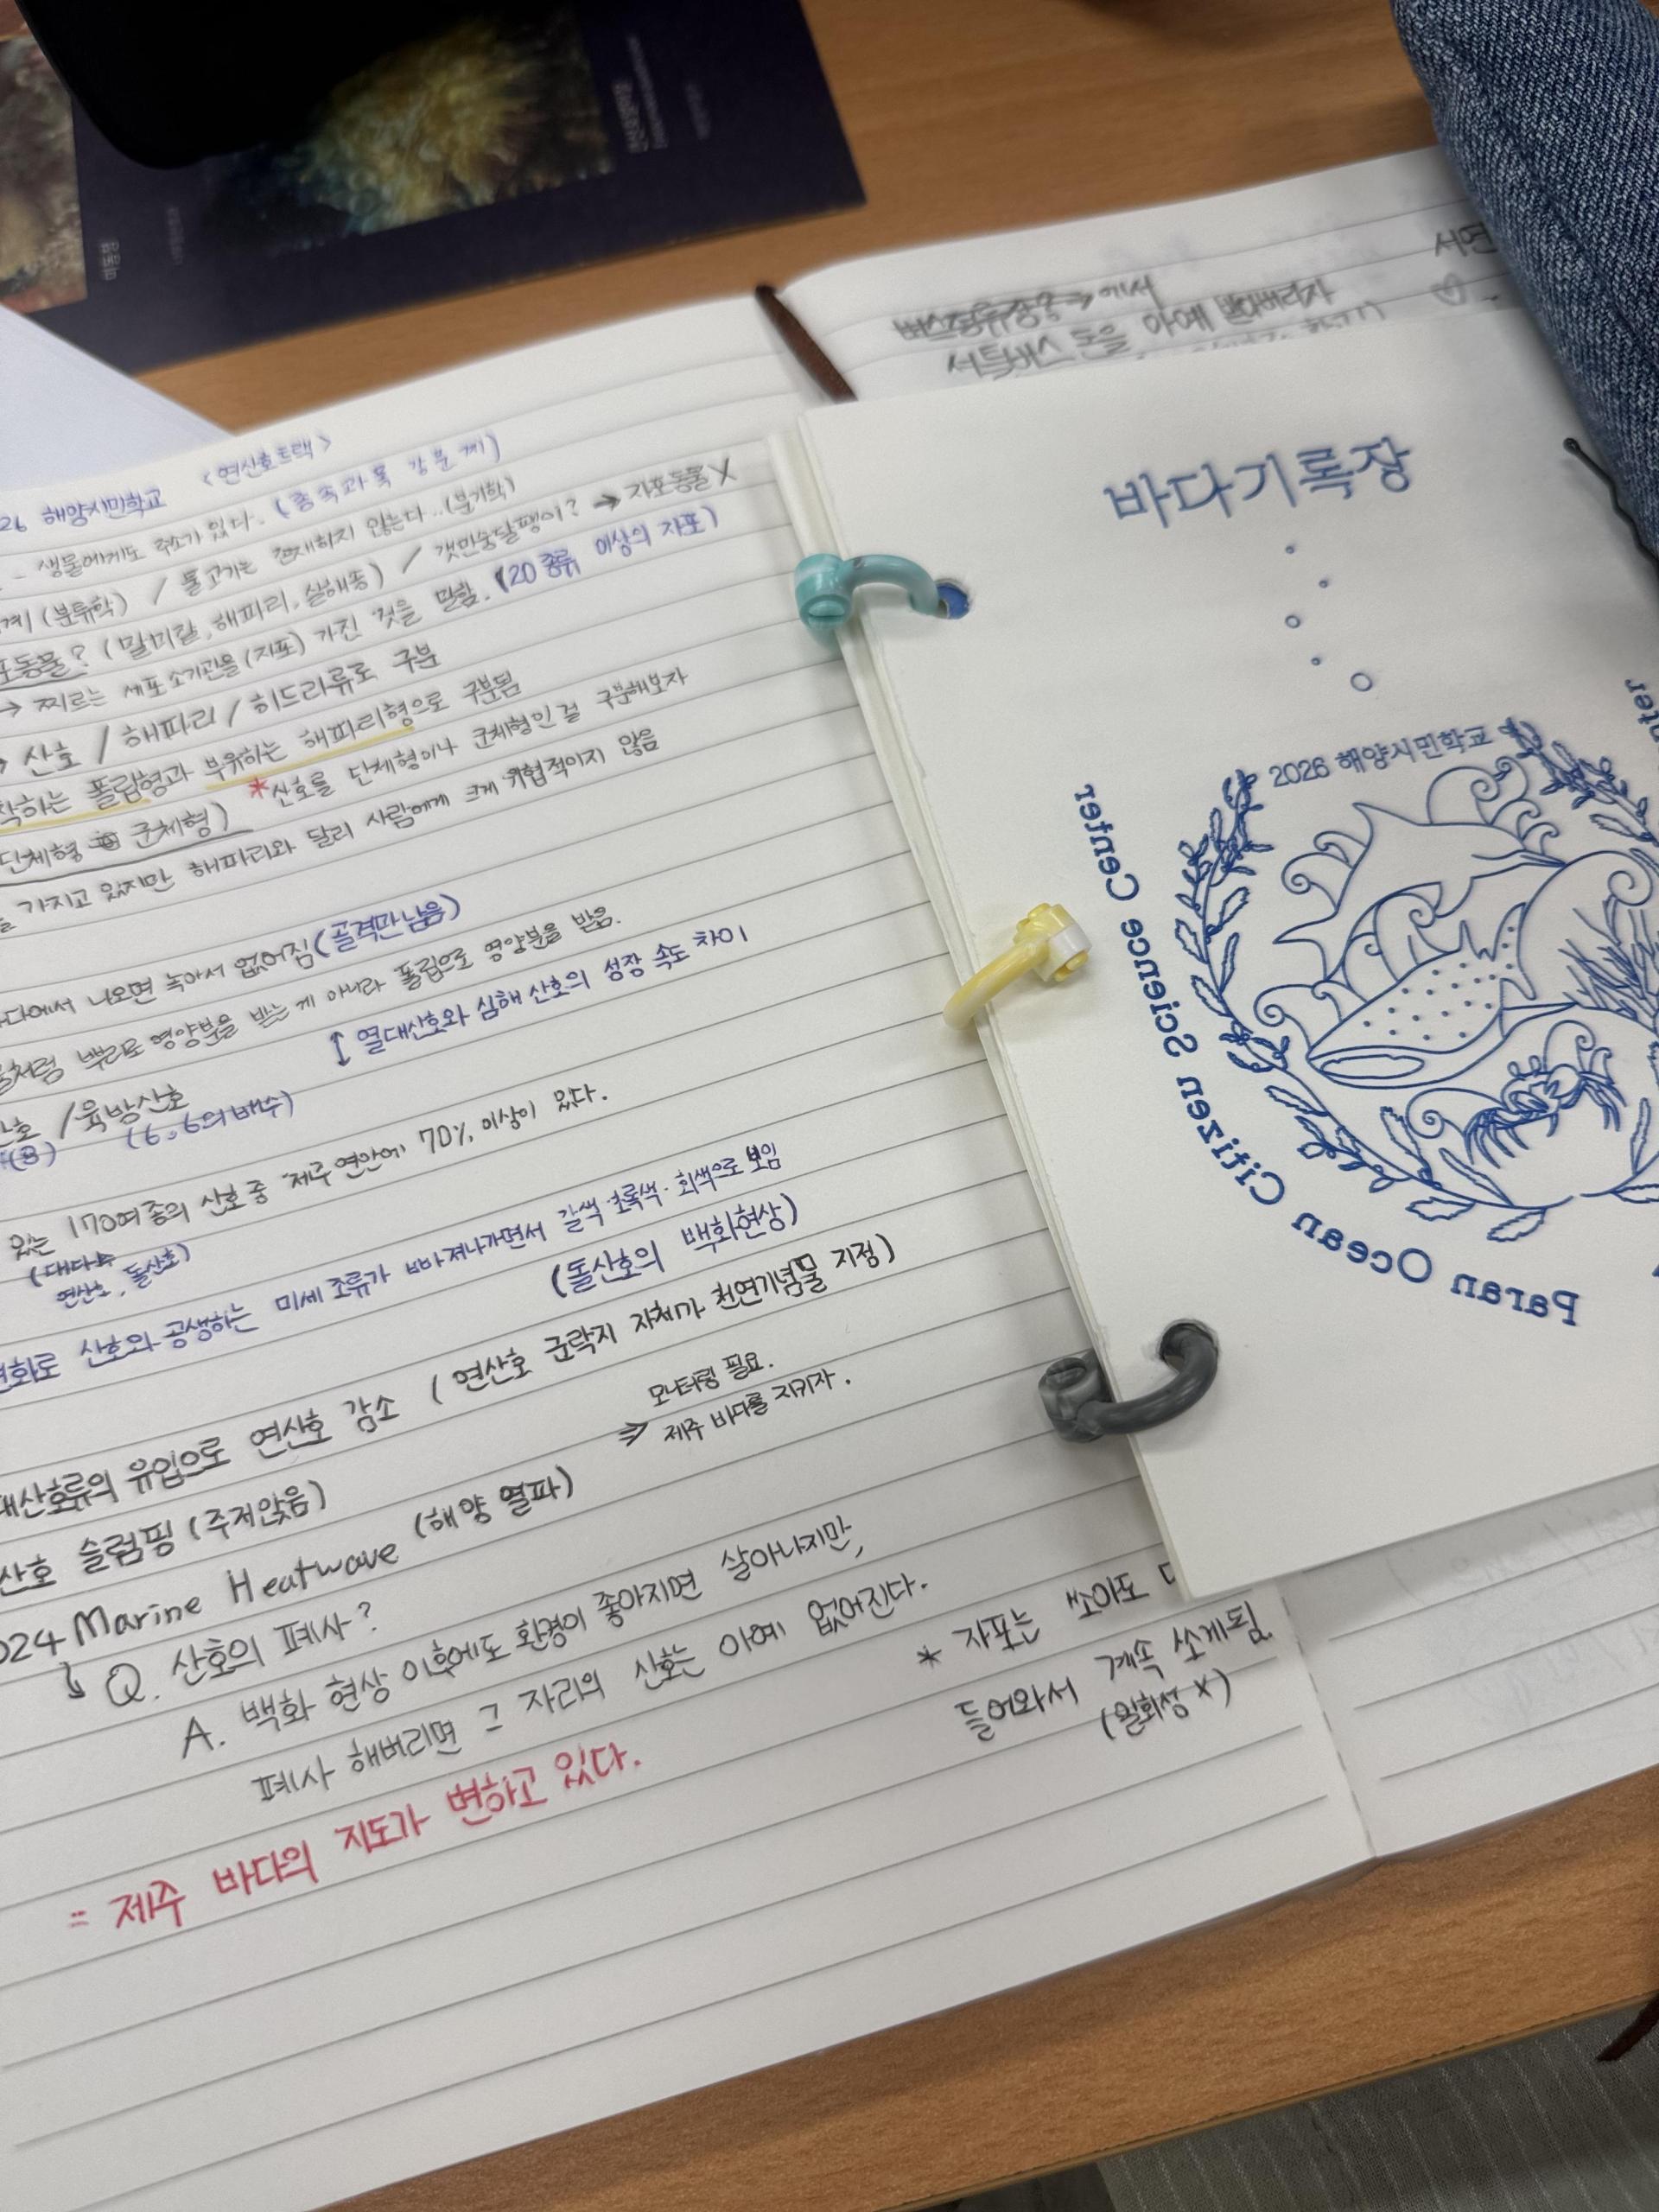 <연산호트랙>
26 해양시민학교
생물에게도 주소가 있다. (종속과목강문계)
계(분류학) / 물고기는 존재하지 않는다..(분기학)
포동물? (말미잘, 해파리, 실해종) / 갯민숭달팽이? → 자포동물X
→ 찌르는 세포소기관을(자포) 가진 것을 말함. (20종류 이상의 자포)
→ 산호 / 해파리 / 히드라류로 구분
착하는 폴립형과 부유하는 해파리형으로 구분됨
단체형 군체형) *산호를 단체형이나 군체형인걸 구분해보자
가지고 있지만 해파리와 달리 사람에게 크게 위협적이지 않음
다에서 나오면 녹아서 없어짐(골격만남음)
물처럼 뿌리로 영양분을 받는게 아니라 폴립으로 영양분을 받음.
↕ 열대산호와 심해산호의 성장 속도 차이
산호 / 육방산호
(8) (6, 6의배수)
있는 170여종의 산호 중 제주연안에 70% 이상이 있다.
(대다수
연산호, 돌산호)
변화로 산호와 공생하는 미세조류가 빠져나가면서 갈색·초록색·회색으로 보임
(돌산호의 백화현상)
대산호류의 유입으로 연산호 감소 (연산호 군락지 자체가 천연기념물 지정)
모니터링 필요.
⇒ 제주 바다를 지키자.
산호 슬럼핑 (주저앉음)
024 Marine Heatwave (해양 열파)
↓ Q. 산호의 폐사?
A. 백화 현상 이후에도 환경이 좋아지면 살아나지만,
폐사 해버리면 그 자리의 산호는 아예 없어진다.
= 제주 바다의 지도가 변하고 있다.
* 자포는 쏘이도
들어와서 계속 쏘게됨.
(일회성 X)
에서
돈을 아예
서연
바다기록장
2026 해양시민학교
Paran Ocean Citizen Science Center